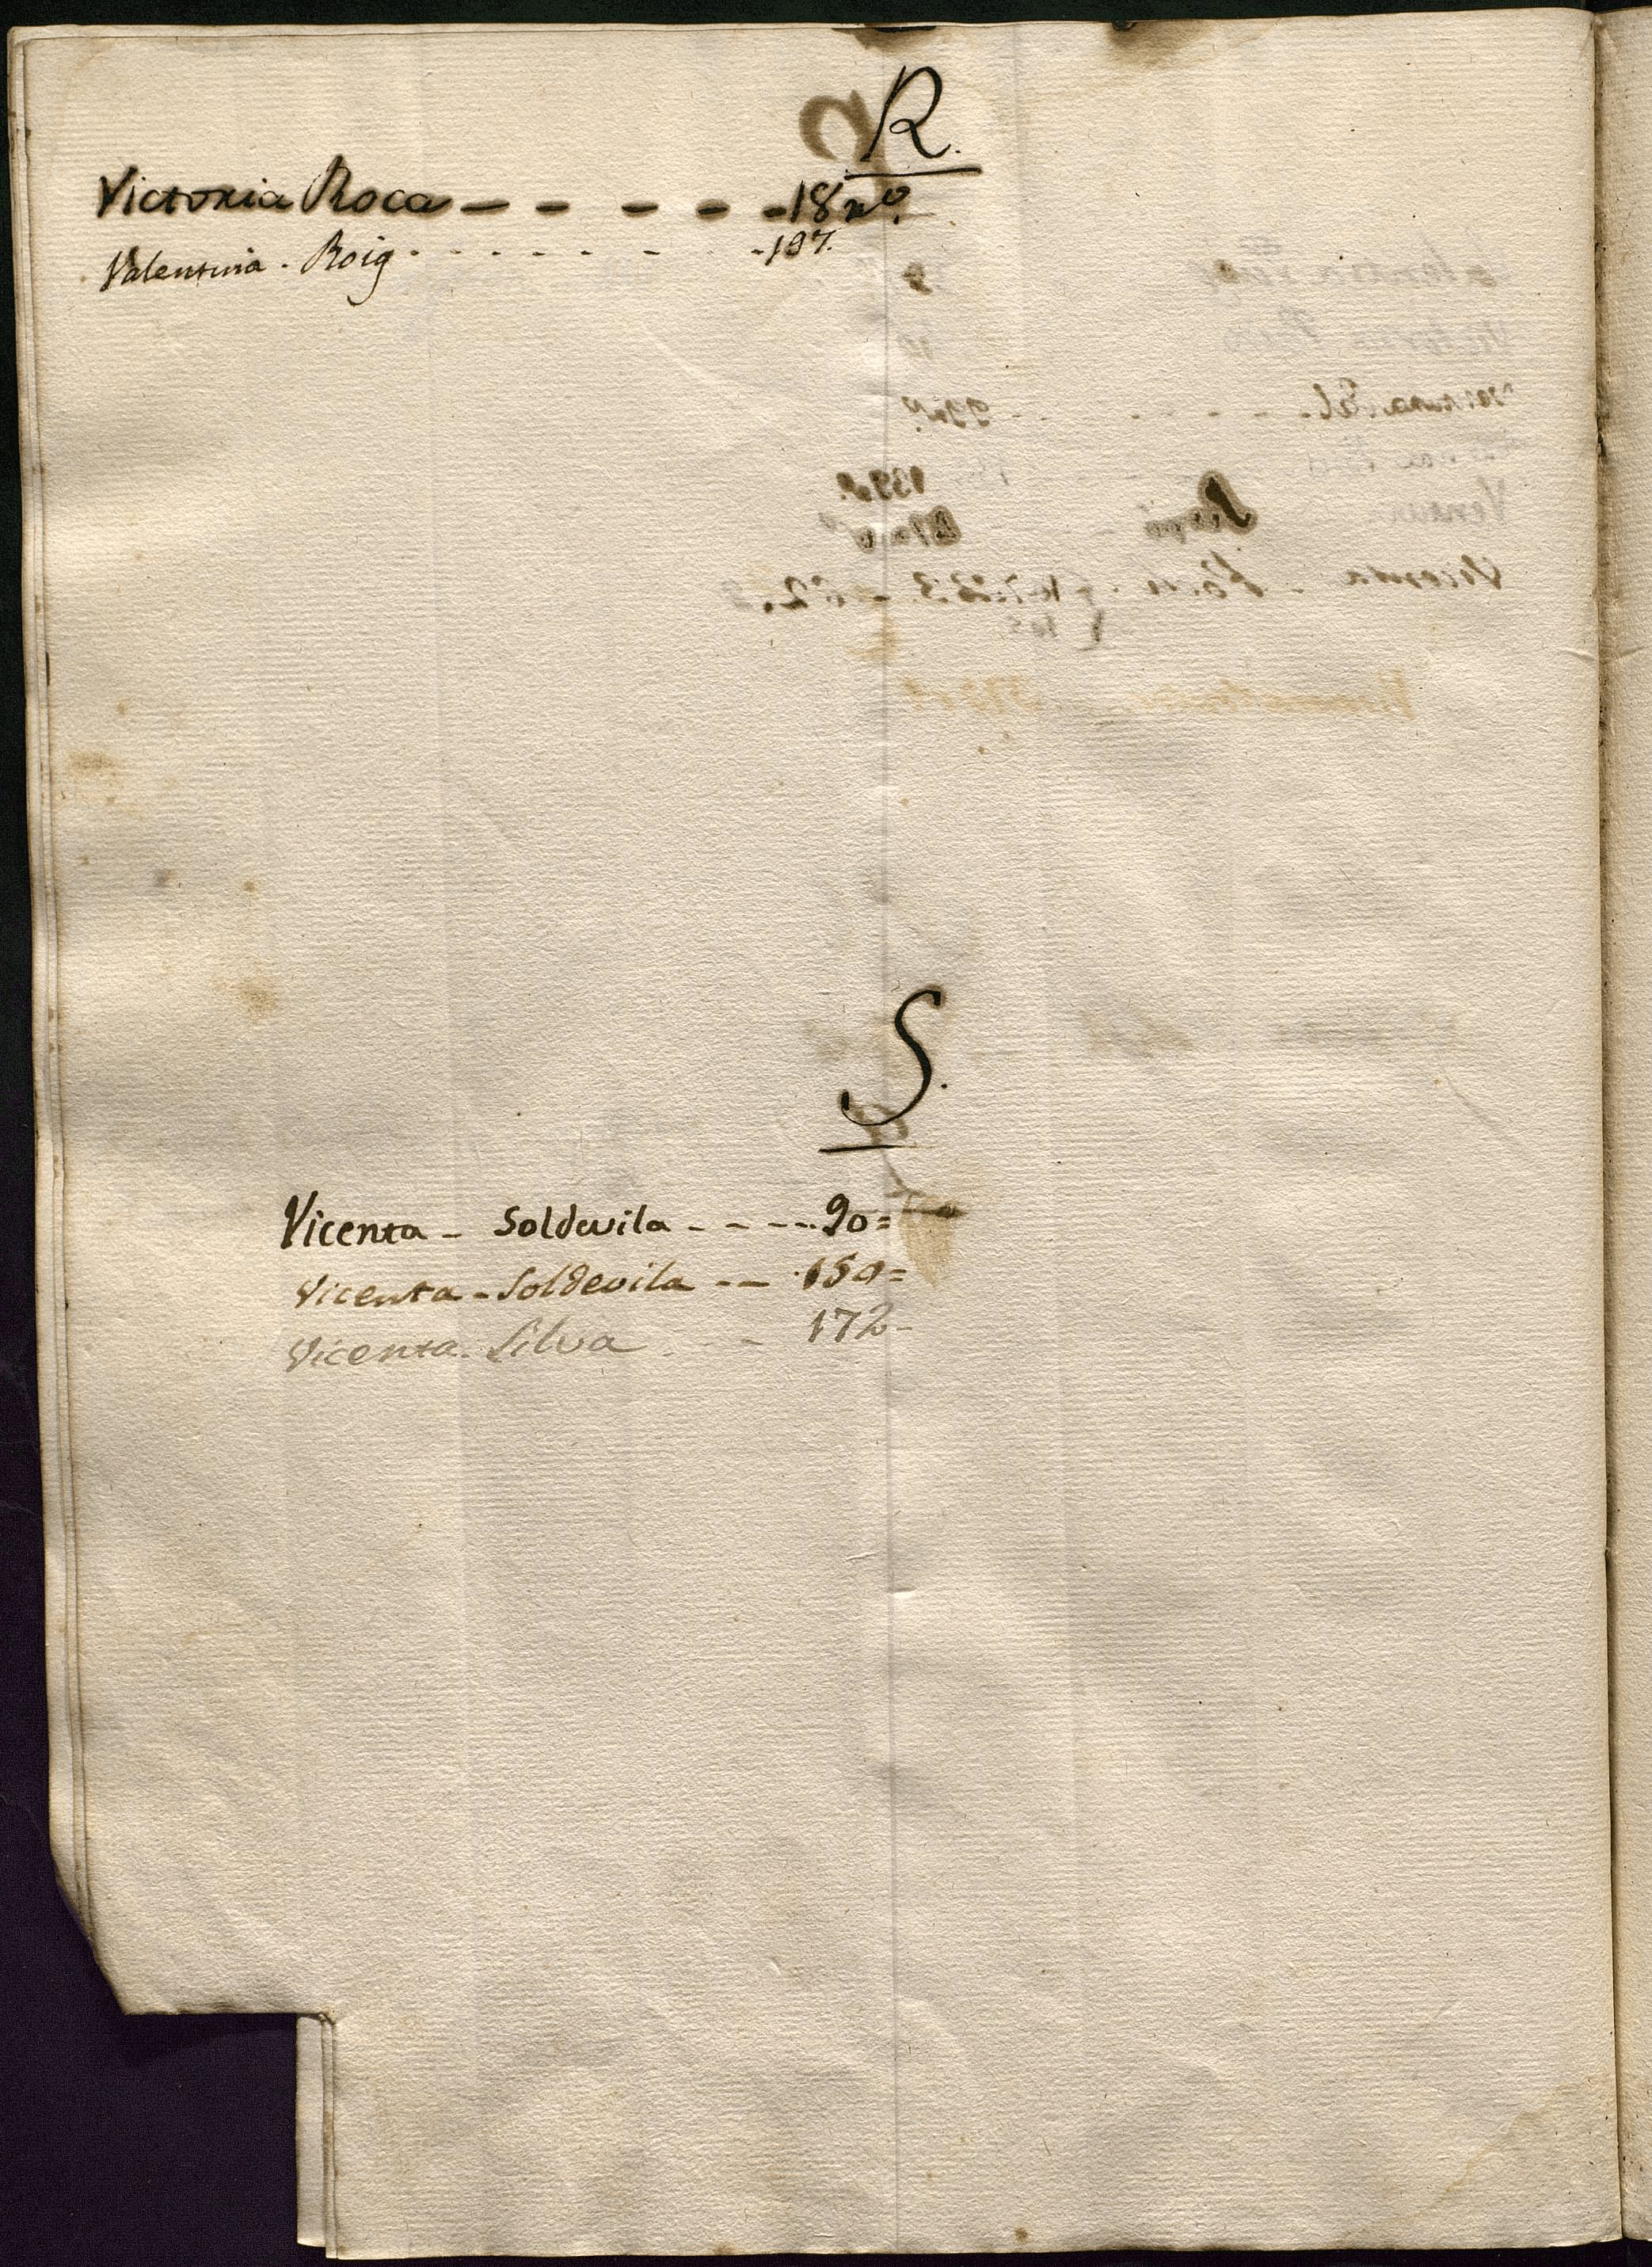 R.
Victoria Roca — - - - - 18 vº.
Valentina - Roig - - - - - - - 197.
S.
Vicenta - Soldevila - - - - - 90 =
Vicenta - Soldevila - - 150 =
Vicenta - Silva - - - 172 -